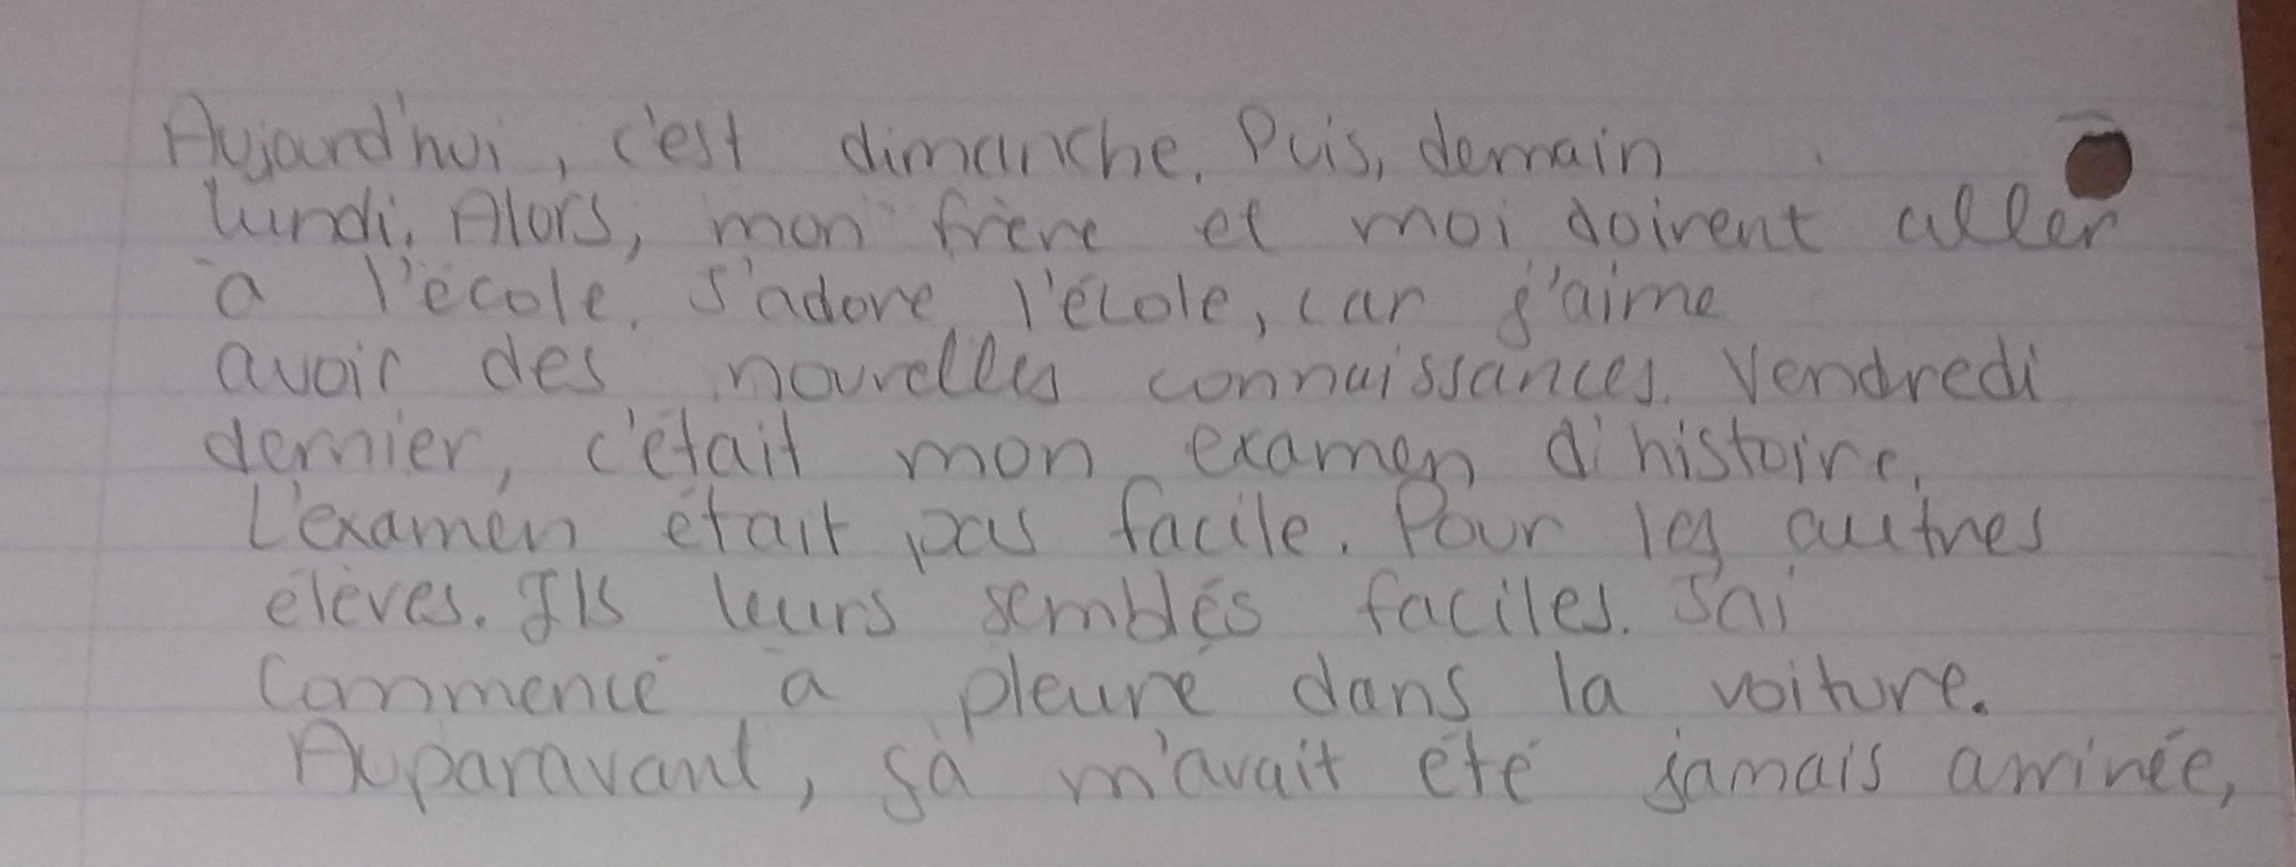 Aujourd'hui, c'est dimanche. Puis, demain
lundi. Alors, mon frère et moi doivent aller
à l'école. J'adore l'école, car j'aime
avoir des nouvelles connaissances. Vendredi
dernier, c'était mon examen d'histoire.
L'examen était pas facile. Pour les autres
élèves. Ils leurs semblés faciles. J'ai
commencé à pleuré dans la voiture.
Auparavant, sà m'avait été jamais arrivée,